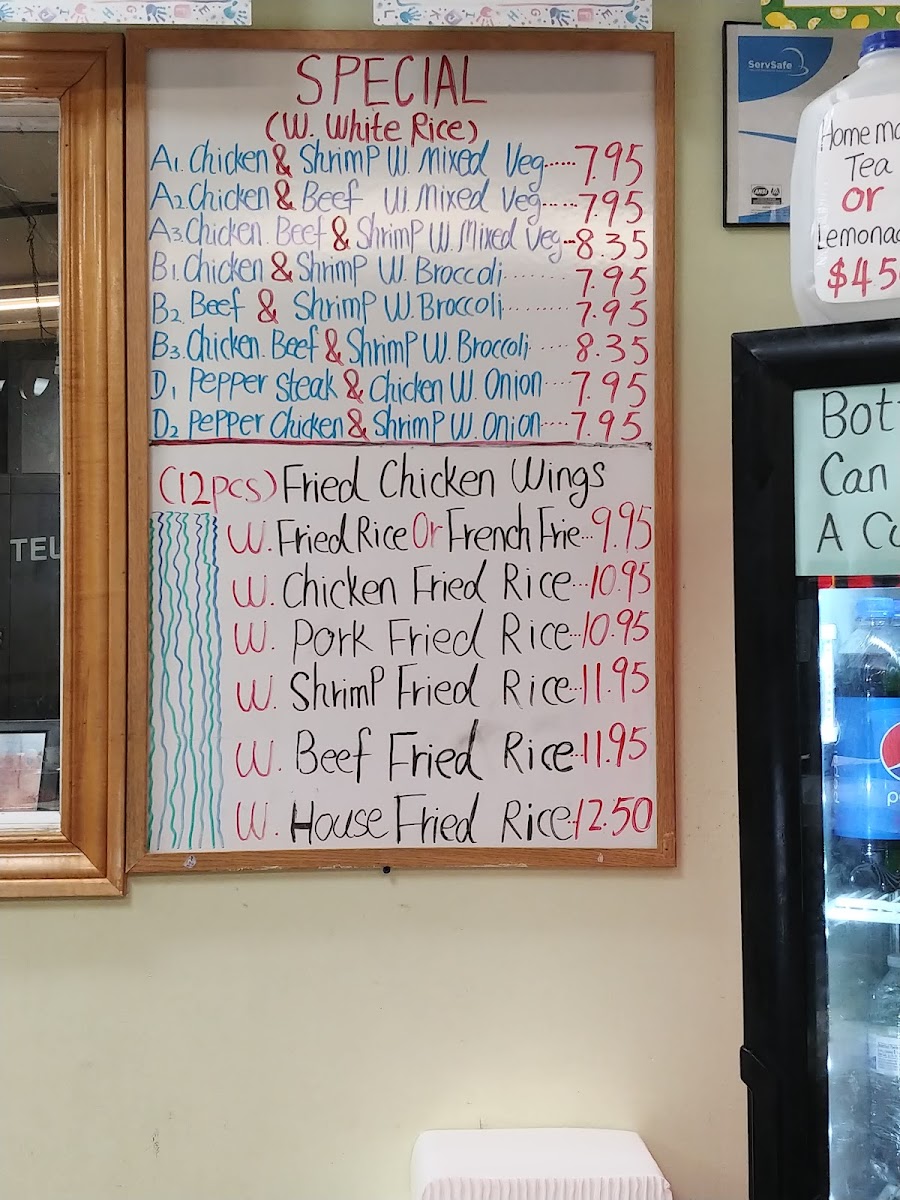 SPECIAL
(W. White Rice)
A1. Chicken & Shrimp W. Mixed Veg......7.95
A2. Chicken & Beef W. Mixed Veg.....7.95
A3. Chicken. Beef & Shrimp W. Mixed Veg...8.35
B1. Chicken & Shrimp W. Broccoli........7.95
B2. Beef & Shrimp W. Broccoli........7.95
B3. Chicken. Beef & Shrimp W. Broccoli.....8.35
D1. Pepper Steak & Chicken W. Onion....7.95
D2. Pepper Chicken & Shrimp W. Onion....7.95
(12pcs) Fried Chicken Wings
W. Fried Rice Or French Frie...9.95
W. Chicken Fried Rice...10.95
W. Pork Fried Rice...10.95
W. Shrimp Fried Rice..11.95
W. Beef Fried Rice...11.95
W. House Fried Rice.12.50
ServSafe
ANSI
Tea
or
Can
A